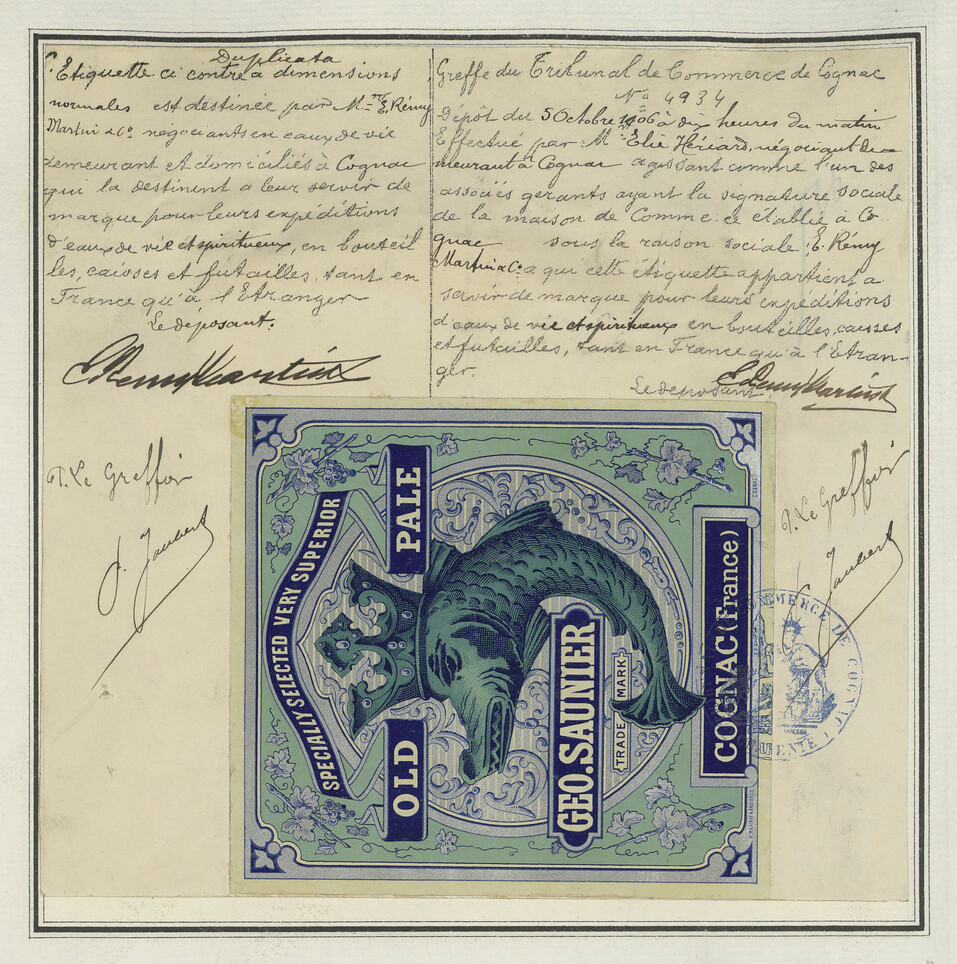 Duplicata
L'Etiquette ci contre a dimensions
normales est destinée par M.rs E. Rémy
Martin & Co négociants en eaux de vie
demeurant et domiciliés à Cognac
qui la destinent a leur servir de
marque pour leurs expéditions
d'eaux de vie et spiritueux, en bouteil
les, caisses et futailles, tant en
France qu'à l'Etranger
Le déposant.
E Remy Martin & Co
P. Le Greffier
J. Jaubert
Greffe du Tribunal de Commerce de Cognac
No 4934
Dépôt du 5 Octobre 1906 à dix heures du matin
Effectué par M.r Elie Hériard, négociant de-
meurant à Cognac agissant comme l'un des
associés gerants ayant la signature sociale
de la maison de Commerce établie à Co
gnac sous la raison sociale: E. Rémy
Martin & Co a qui cette étiquette appartient a
servir de marque pour leurs expéditions
d'eaux de vie et spiritueux en bouteilles, caisses
et futailles, tant en France qu'à l'Etran-
ger.
Le déposant
E Remy Martin & Co
P. Le Greffier
J. Jaubert
SPECIALLY SELECTED VERY SUPERIOR
OLD PALE
GEO. SAUNIER
TRADE MARK
COGNAC (France)
COMMERCE DE COGNAC
CHARENTE